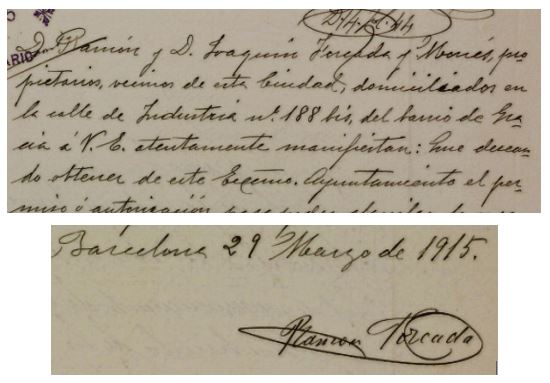 D. Ramón y D. Joaquín Forcada y Monés, pro-
pietarios, vecinos de esta Ciudad, domiciliados en
la calle de Industria nº. 188 bis, del barrio de Gra-
cia á V. E. atentamente manifiestan: Que desean-
do obtener de este Excmo. Ayuntamiento el per-
miso ó autorización para poder
Barcelona 29 Marzo de 1915.
Ramón Forcada